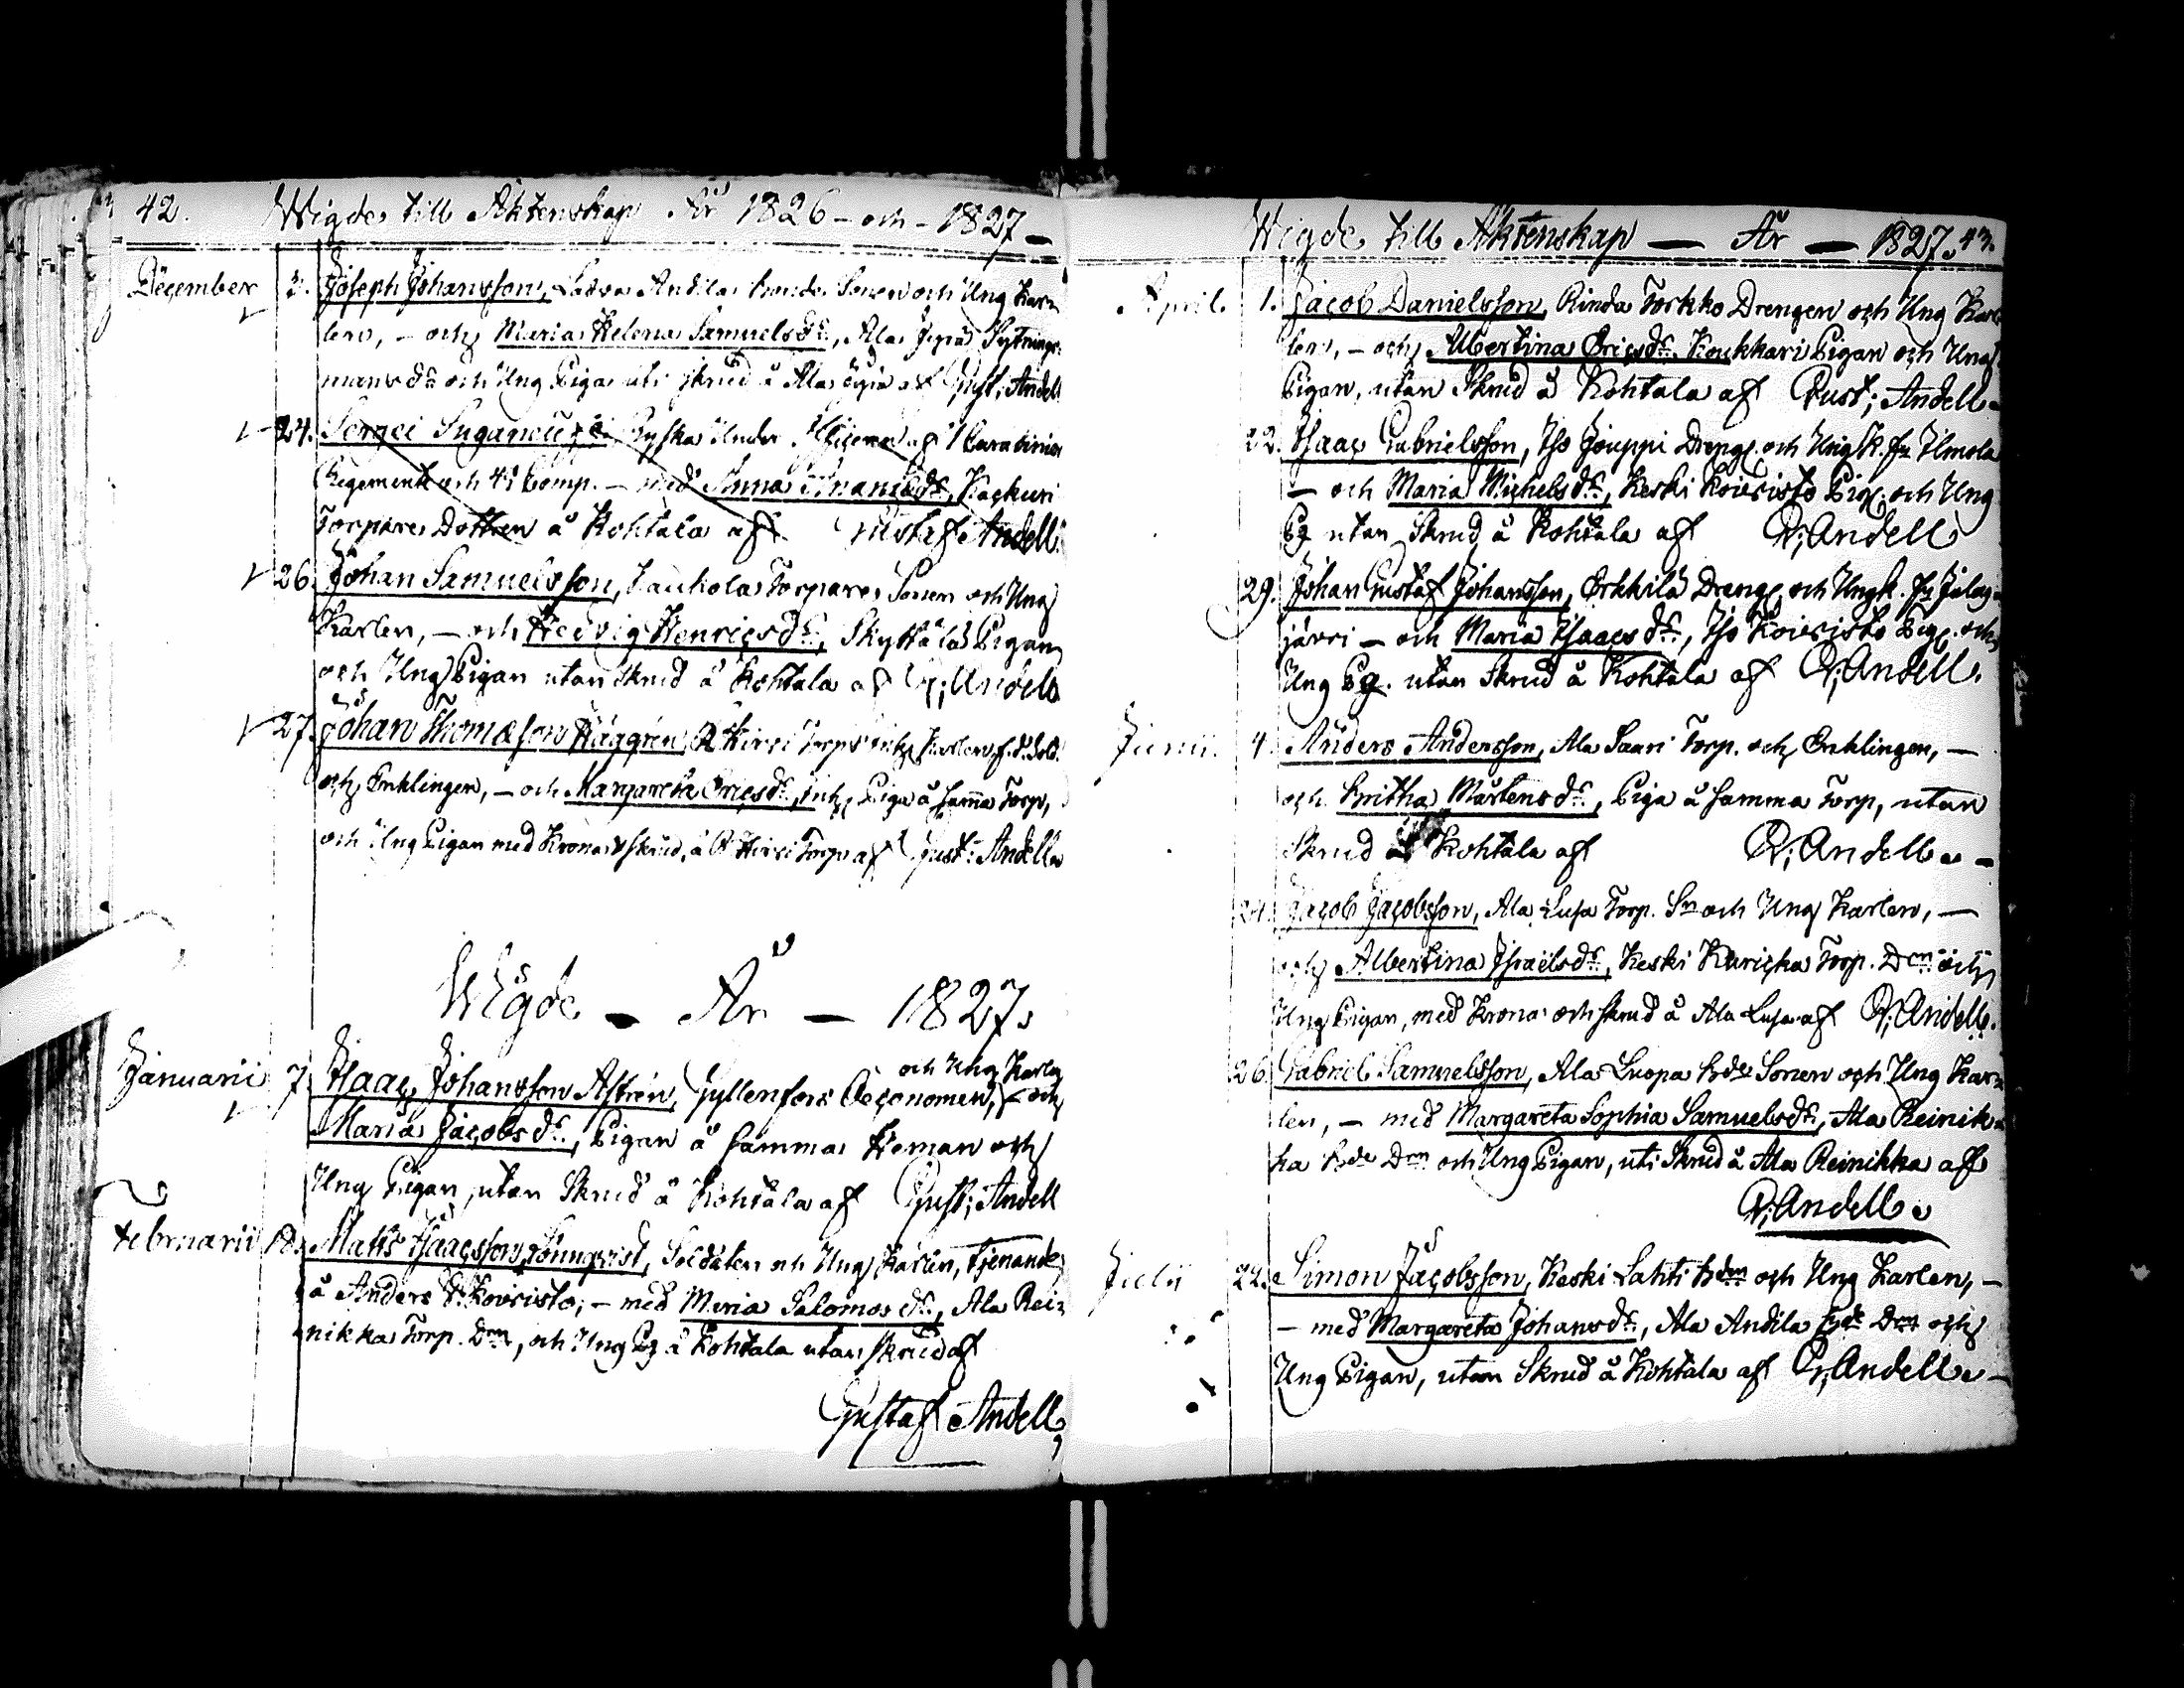 42. Wigde till Aktenskap År 1826 - och - 1827 -
December 3. Joseph Johansson, Latva Andila bonde Sonen och Ung Kar=
len, - och Maria Helena Samuelsdr., Ala Jyrä Sytnings=
mans dr och Ung Piga uti skrud å Ala Jyrä af Gust; Andell
24. Sergei Ryska Under af Carabinier
Regemente och 4de Comp. - med Anna dr., Kackuri
Torpare Dottren å Kohtala af Gustaf Andell.
26. Johan Samuelsson, Laukola Torpare Sonen och Ung
Karlen, - och Hedvig Henricsdr., Skyttälä Pigan
och Ung Pigan utan skrud å Kohtala af G; Andell
27. Johan Thomæson Häggrén, A Hirvi Torps inh. Karlen f. d. Sold.
och Enklingen, - och Margareta Ericsdr., inh. Piga å samma Torp,
och Ung Pigan med Krona & skrud, å A Hirvi Torp af Gust: Andell
Wigde - År - 1827.
och Ung Karlen
Januarii 7. Isaac Johansson Astrén, Gyllenfors Oeconomen, - och
Maria Jacobsdr., Pigan å samma Heman och
Ung Pigan, utan Skrud å Kohtala af Gust; Andell
Februarii 18. Matts Isaacsson Lönnqvist, Soldaten och Ung Karlen, tjenande
å Anders K. Koivisto; - med Maria Salomosdr., Ala Rei=
nikka Torp. Dren, och Ung Pg å Kohtala utan skrud af
Gustaf Andell
Wigde till Aktenskap - År - 1827. 43.
April. 1. Jacob Danielsson, Rinda Torkko Drengen och Ung Kar=
len, - och Albertina Ericsdr. Koukkari Pigan och Ung
Pigan, utan Skrud å Kohtala af Gust; Andell -
22. Isaac Gabrielsson, Iso Jouppi Dreng. och Ung K. fr. Ilmola
- och Maria Michelsdr., Keski Koivisto Pig. och Ung
Pg utan Skrud å Kohtala af G; Andell
29. Johan Gustaf Johansson, Erkkilä Dreng. och Ungk. fr. Jalas=
järvi - och Maria Isaacsdr., Iso Koivisto Pig. och
Ung Pg. utan Skrud å Kohtala af G; Andell.
Junii. 4. Anders Andersson, Ala Saari Torp. och Enklingen, -
och Britha Mårtensdr., Piga å samma Torp, utan
Skrud å Kohtala af G; Andell. -
24. Jacob Jacobsson, Ala Lusa Torp. Sn och Ung Karlen, -
och Albertina Israelsdr., Keski Kuricka Torp. Dren och
Ung Pigan, med Krona och skrud å Ala Lusa af G; Andell.
26. Gabriel Samuelsson, Ala Luopa bde Sonen och Ung Kar=
len, - med Margareta Sophia Samuelsdr., Ala Reinik=
ka bde Dren och Ung Pigan, uti Skrud å Ala Reinikka af
G; Andell.
Julii 22. Simon Jacobsson, Keski Lahti bden och Ung Karlen, -
- med Margareta Johansdr., Ala Andila bde Dren och
Ung Pigan, utan Skrud å Kohtala af G; Andell. -